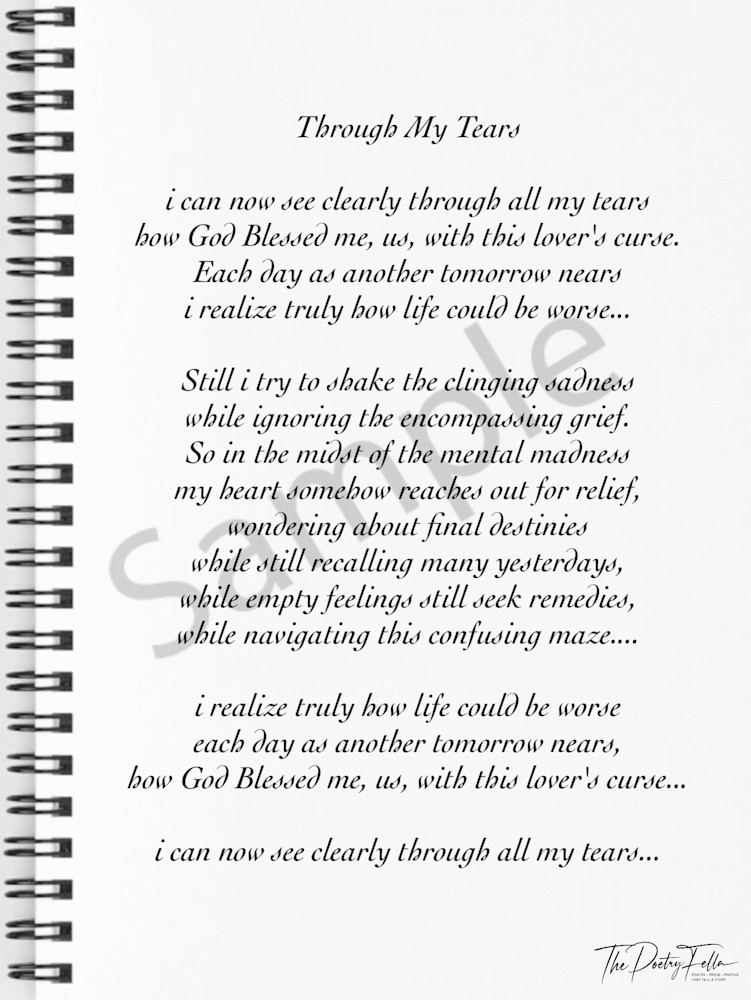 Through My Tears
i can now see clearly through all my tears
how God Blessed me, us, with this lover's curse.
Each day as another tomorrow nears
i realize truly how life could be worse...
Still i try to shake the clinging sadness
while ignoring the encompassing grief.
So in the midst of the mental madness
my heart somehow reaches out for relief,
wondering about final destinies
while still recalling many yesterdays,
while empty feelings still seek remedies,
while navigating this confusing maze....
i realize truly how life could be worse
each day as another tomorrow nears,
how God Blessed me, us, with this lover's curse...
i can now see clearly through all my tears...
Sample
The Poetry Fella
POETRY • PROSE • PHOTOS
THAT TELL A STORY